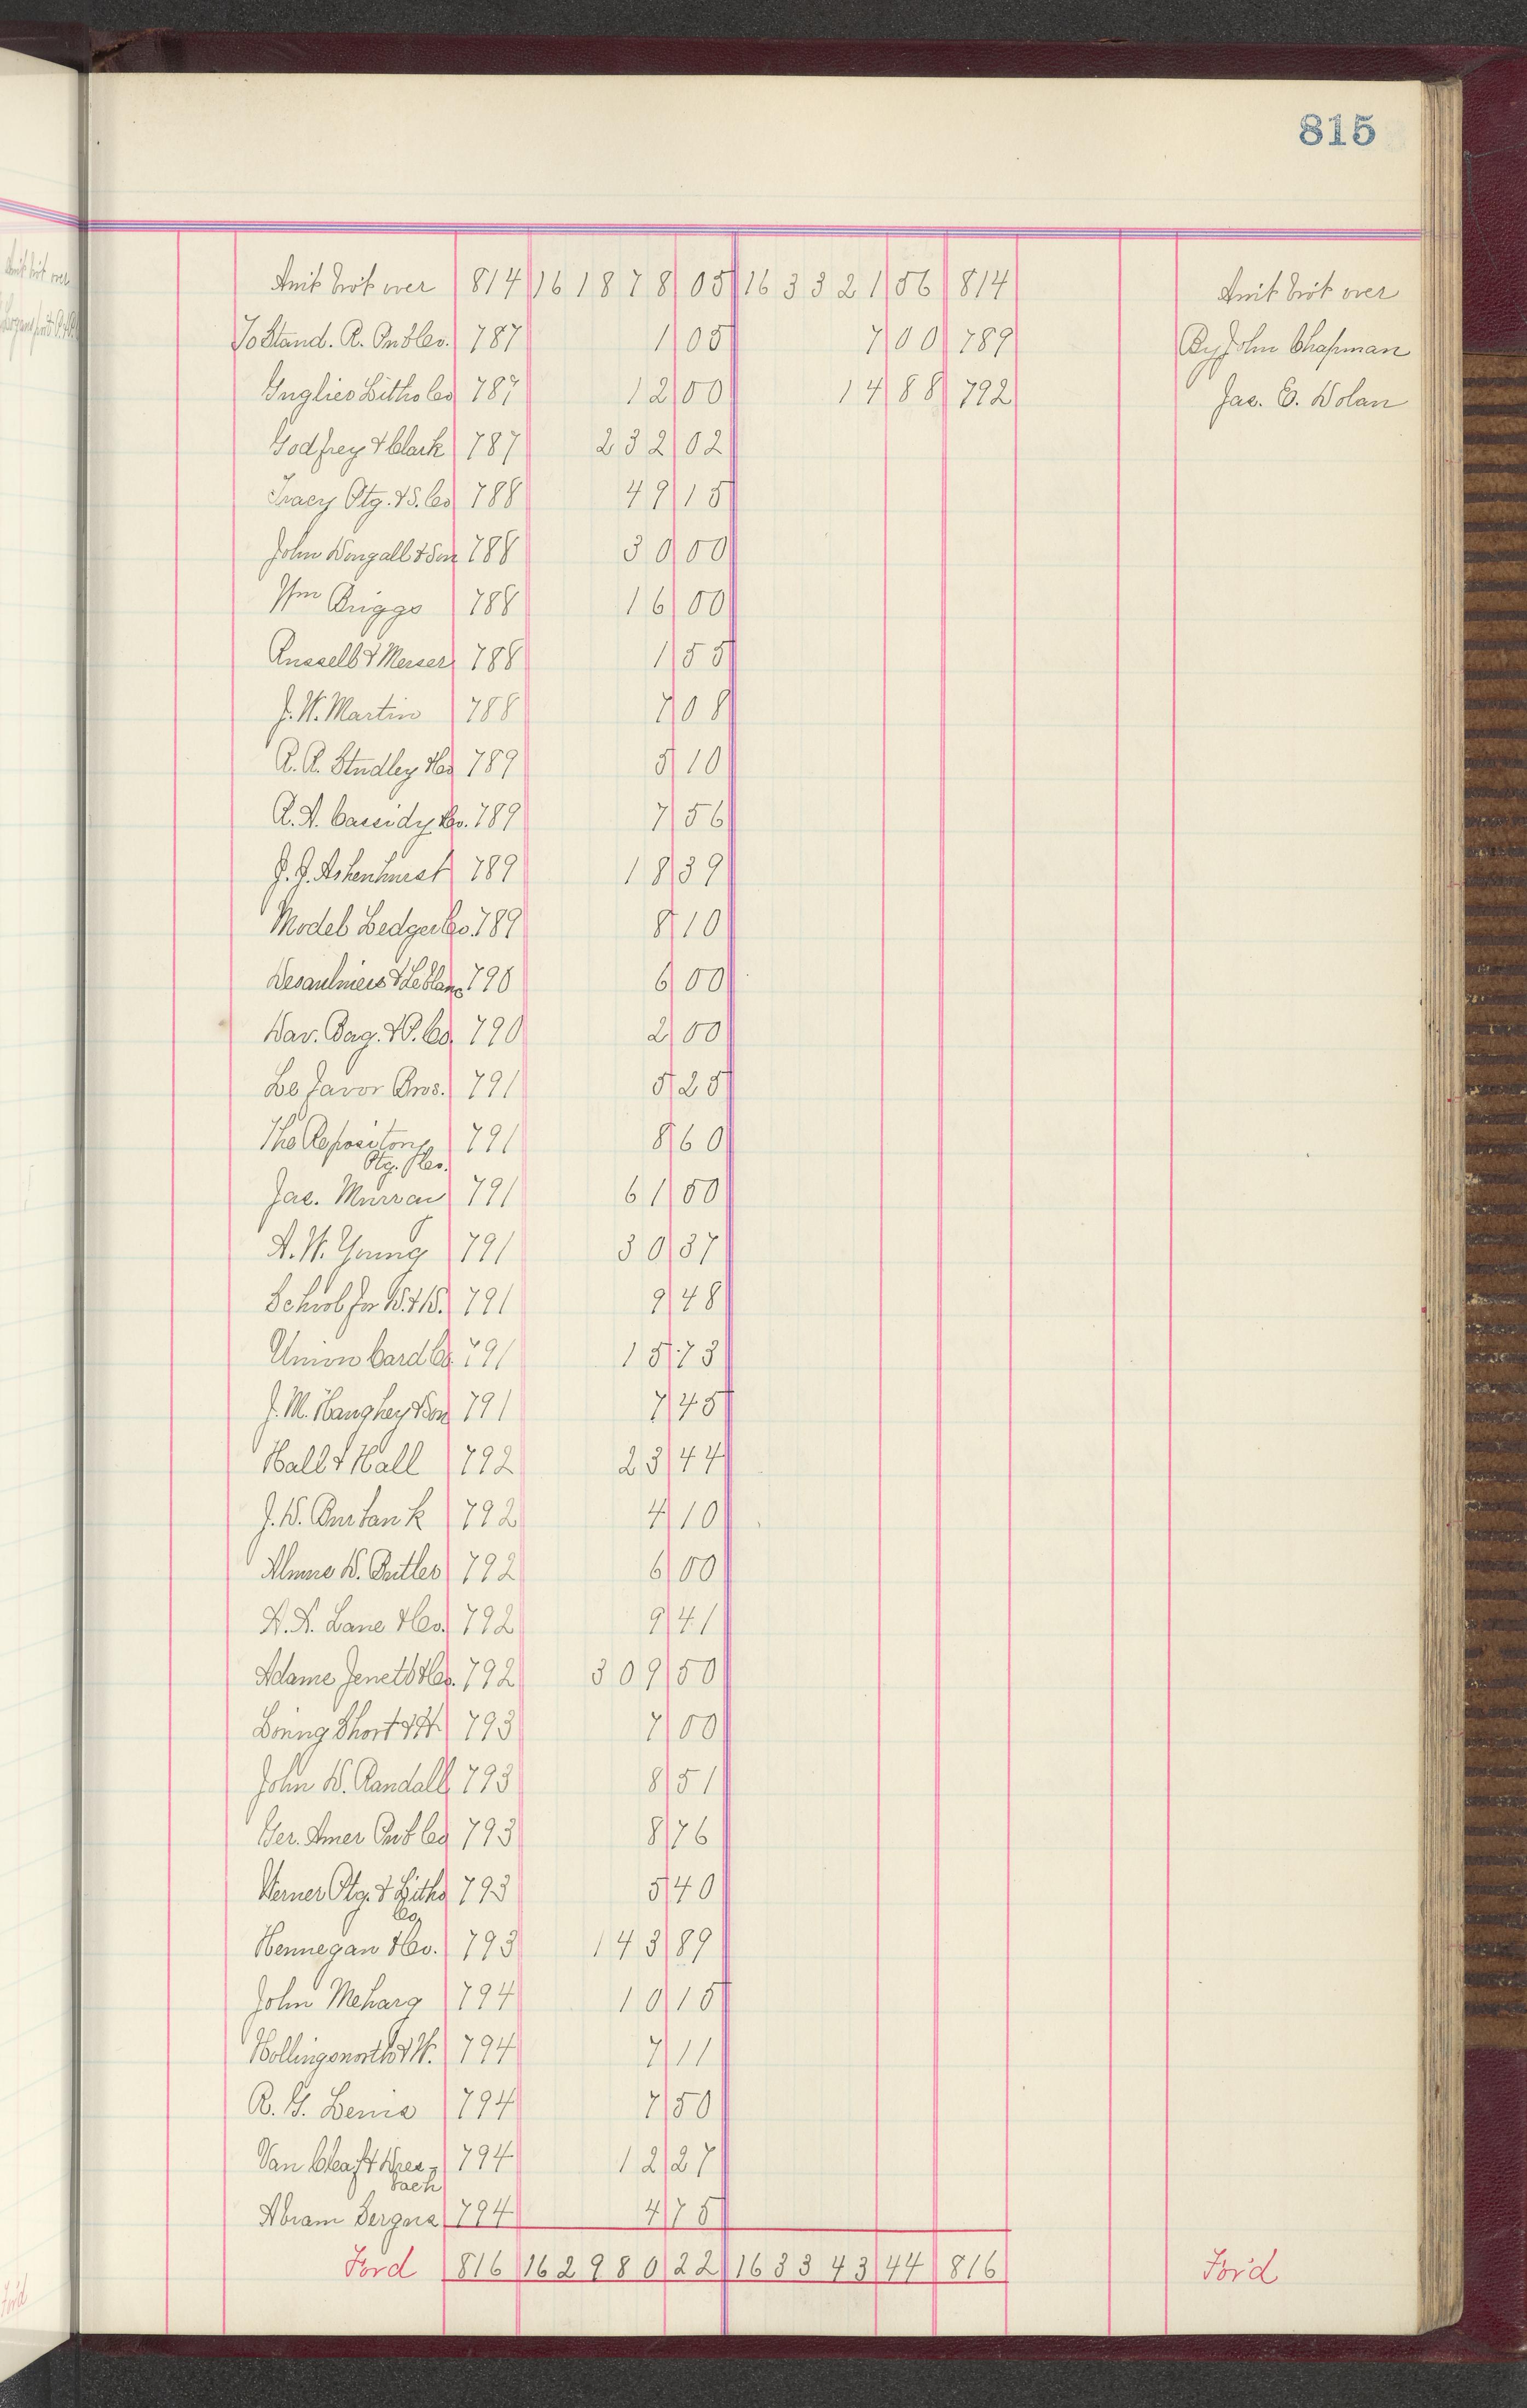 815
Amt bro't over 814 161878 05 163321 56 814 Amt bro't over
To Stand. R. Pub Co. 787 1 05 7 00 789 By John Chapman
Inglies Litho Co 787 12 00 14 88 792 Jas. E. Dolan
Godfrey & Clark 787 232 02
Tracy Ptg. & S. Co 788 49 15
John Dougall & Son 788 30 00
Wm Briggs 788 16 00
Russell & Messer 788 1 55
J. W. Martin 788 7 08
R. R. Studley & Co 789 5 10
A. A. Cassidy & Co. 789 7 56
J. J. Ashenhurst 789 18 39
Model Ledger Co. 789 8 10
Desaulniers & Leblanc 790 6 00
Dav. Bag. & P. Co. 790 2 00
Le Favor Bros. 791 5 25
The Repository 791 8 60
Ptg. Co.
Jas. Murray 791 61 50
A. W. Young 791 30 37
School for 791 9 48
Union Card Co 791 15 73
J. M. Haughey & Son 791 7 45
Hall & Hall 792 23 44
J. D. Burbank 792 4 10
D. Butler 792 6 00
A. A. Lane & Co. 792 9 41
Adams 792 309 50
Loring Short & H. 793 7 00
John D. Randall 793 8 51
Ger. Amer Pub Co 793 8 76
Werner Ptg. & Litho 793 5 40
Co.
Hennegan & Co. 793 143 89
John Meharg 794 10 15
Hollingsworth & W. 794 7 11
R. G. 794 7 50
Van 794 12 27
bach
Abram 794 4 75
For'd 816 162980 22 163343 44 816 For'd